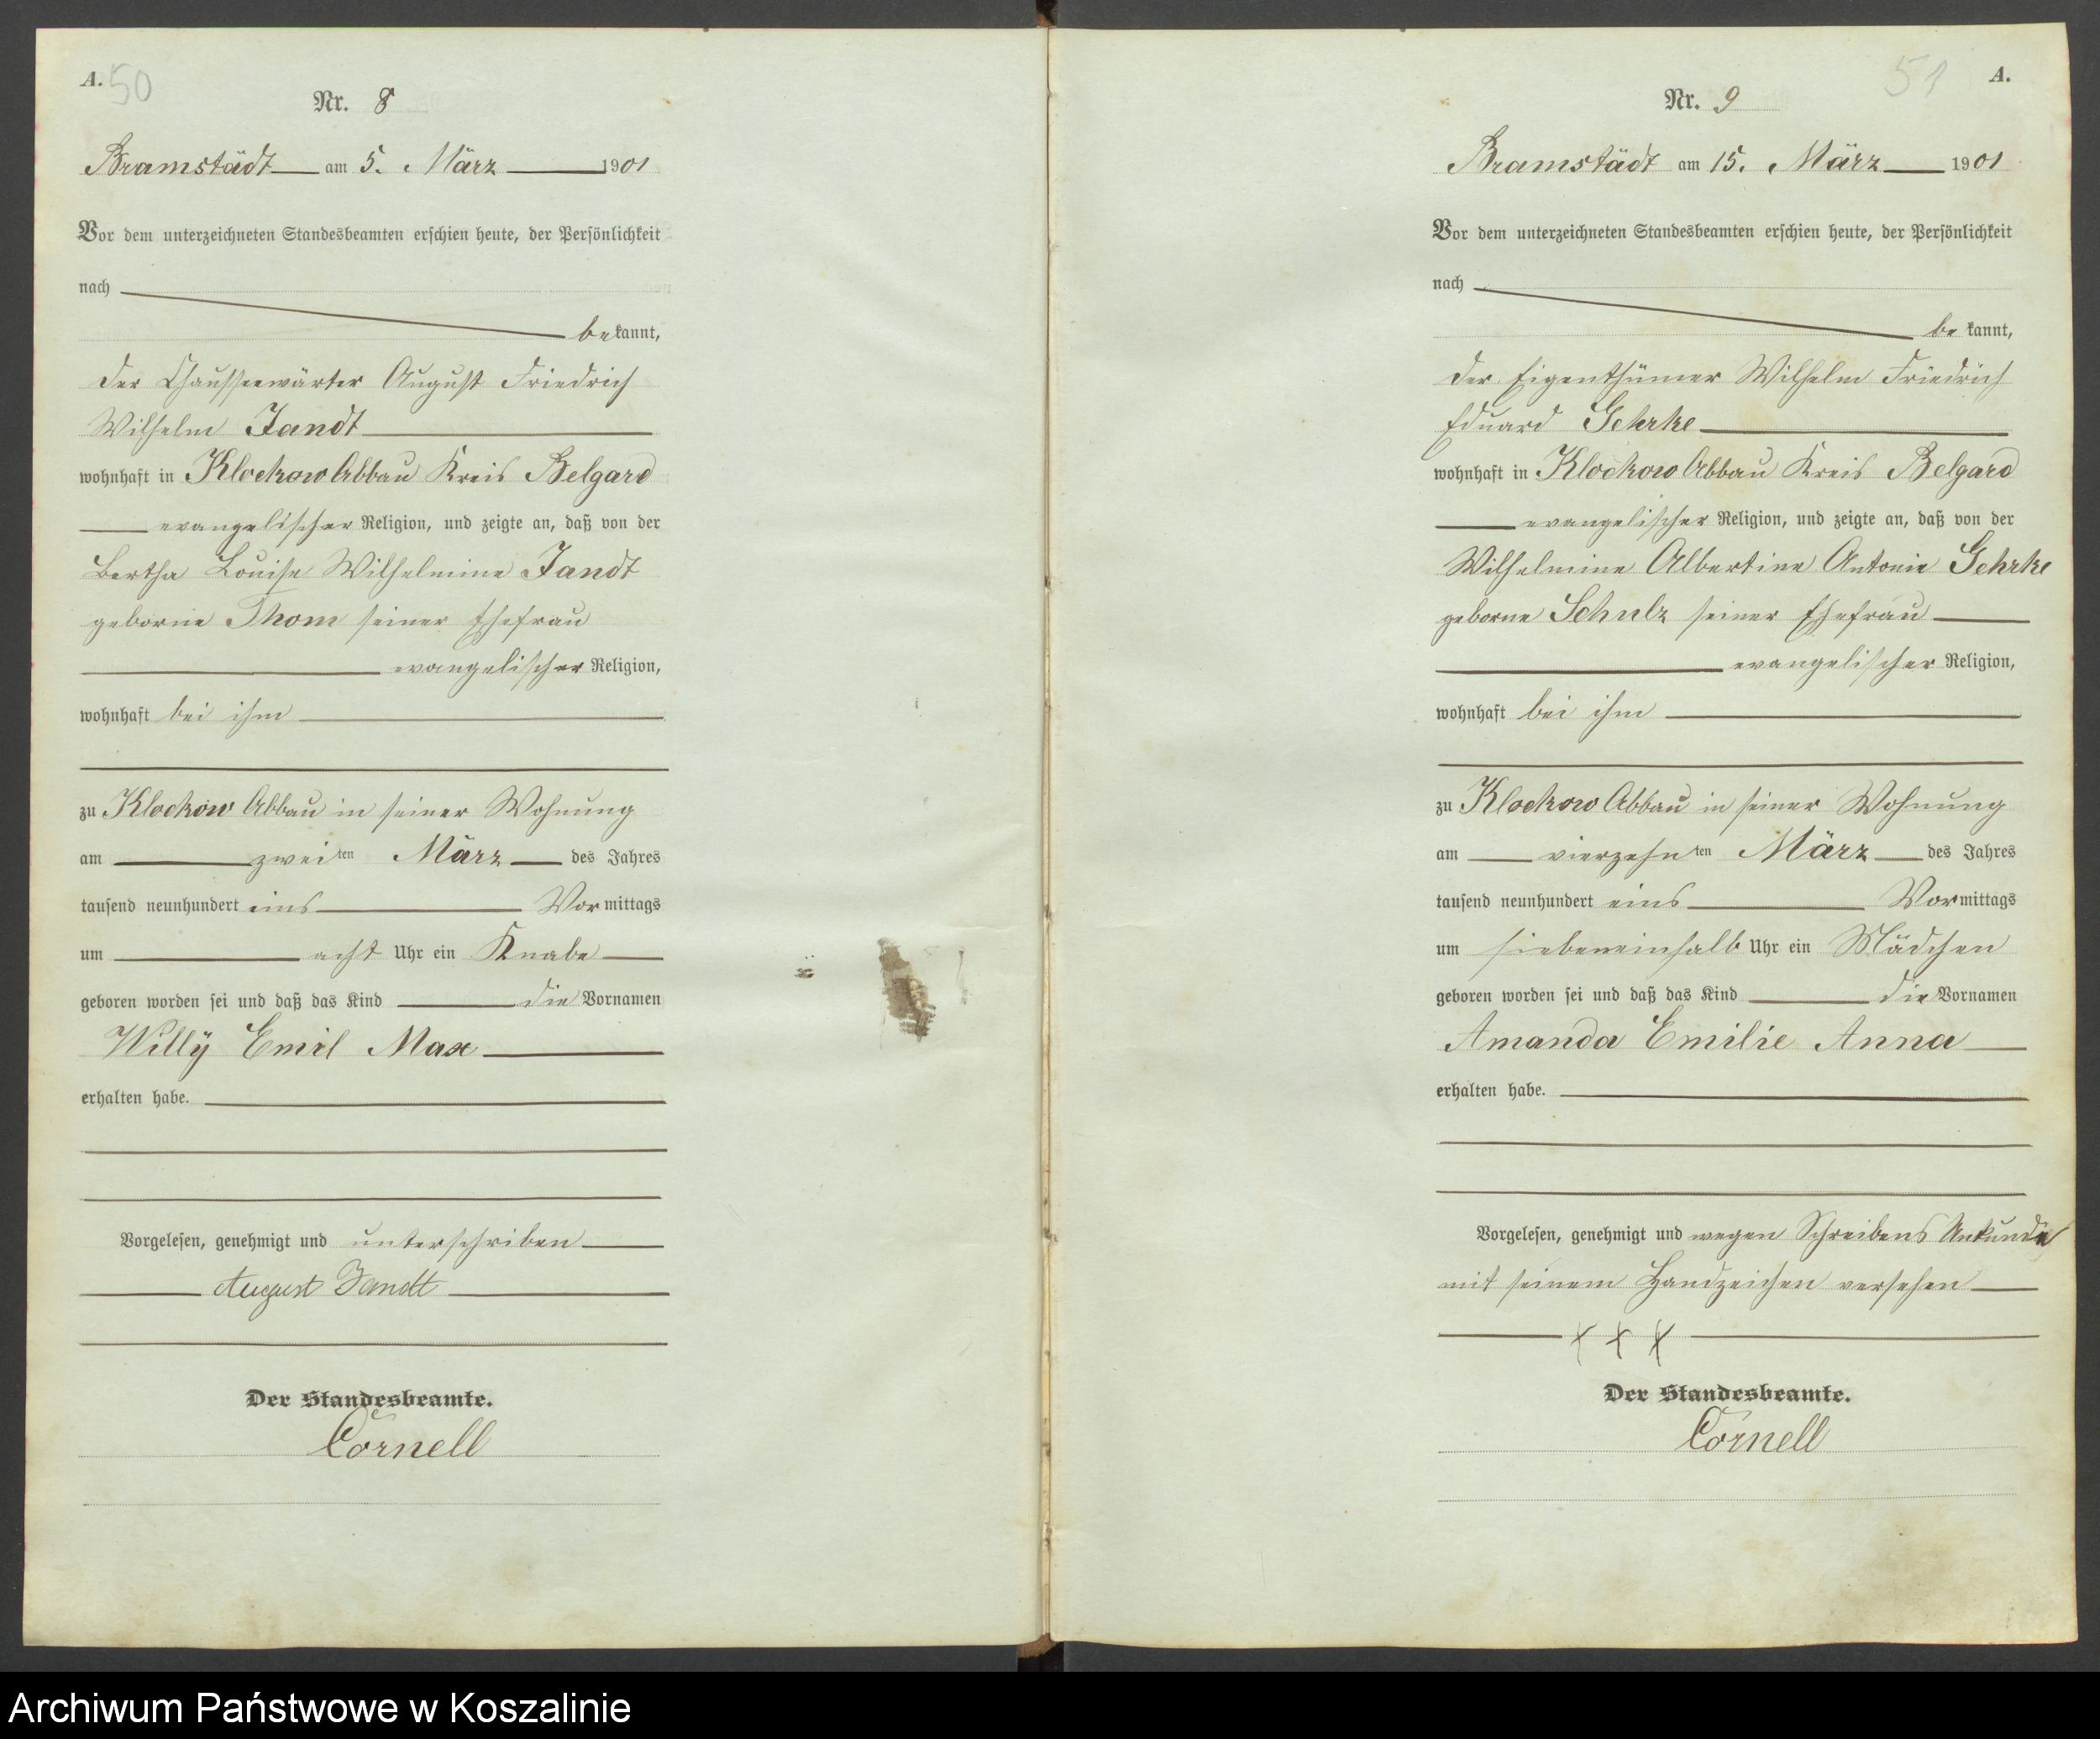 A. 50
Nr. 8
Bramstädt am 5. März 1901
Vor dem unterzeichneten Standesbeamten erschien heute, der Persönlichkeit
nach
bekannt,
der Chausseewärter August Friedrich
Wilhelm Jandt
wohnhaft in Klockow Abbau Kreis Belgard
evangelischer Religion, und zeigte an, daß von der
Bertha Louise Wilhelmine Jandt
geborne Thom seiner Ehefrau
evangelischer Religion,
wohnhaft bei ihm
zu Klockow Abbau in seiner Wohnung
am zweiten März des Jahres
tausend neunhundert eins Vormittags
um acht Uhr ein Knabe
geboren worden sei und daß das Kind die Vornamen
Willÿ Emil Max
erhalten habe.
Vorgelesen, genehmigt und unterschriben
August Jandt
Der Standesbeamte.
Cornell
51 A.
Nr. 9
Bramstädt am 15. März 1901
Vor dem unterzeichneten Standesbeamten erschien heute, der Persönlichkeit
nach
bekannt,
der Eigenthümer Wilhelm Friedrich
Eduard Gehrke
wohnhaft in Klockow Abbau Kreis Belgard
evangelischer Religion, und zeigte an, daß von der
Wilhelmine Albertine Antonie Gehrke
geborne Schulz seiner Ehefrau
evangelischer Religion,
wohnhaft bei ihm
zu Klockow Abbau in seiner Wohnung
am vierzehnten März des Jahres
tausend neunhundert eins Vormittags
um siebeneinhalb Uhr ein Mädchen
geboren worden sei und daß das Kind die Vornamen
Amanda Emilie Anna
erhalten habe.
Vorgelesen, genehmigt und wegen Schreibens Unkunde
mit seinem Handzeichen versehen
+ + +
Der Standesbeamte.
Cornell
Archiwum Państwowe w Koszalinie